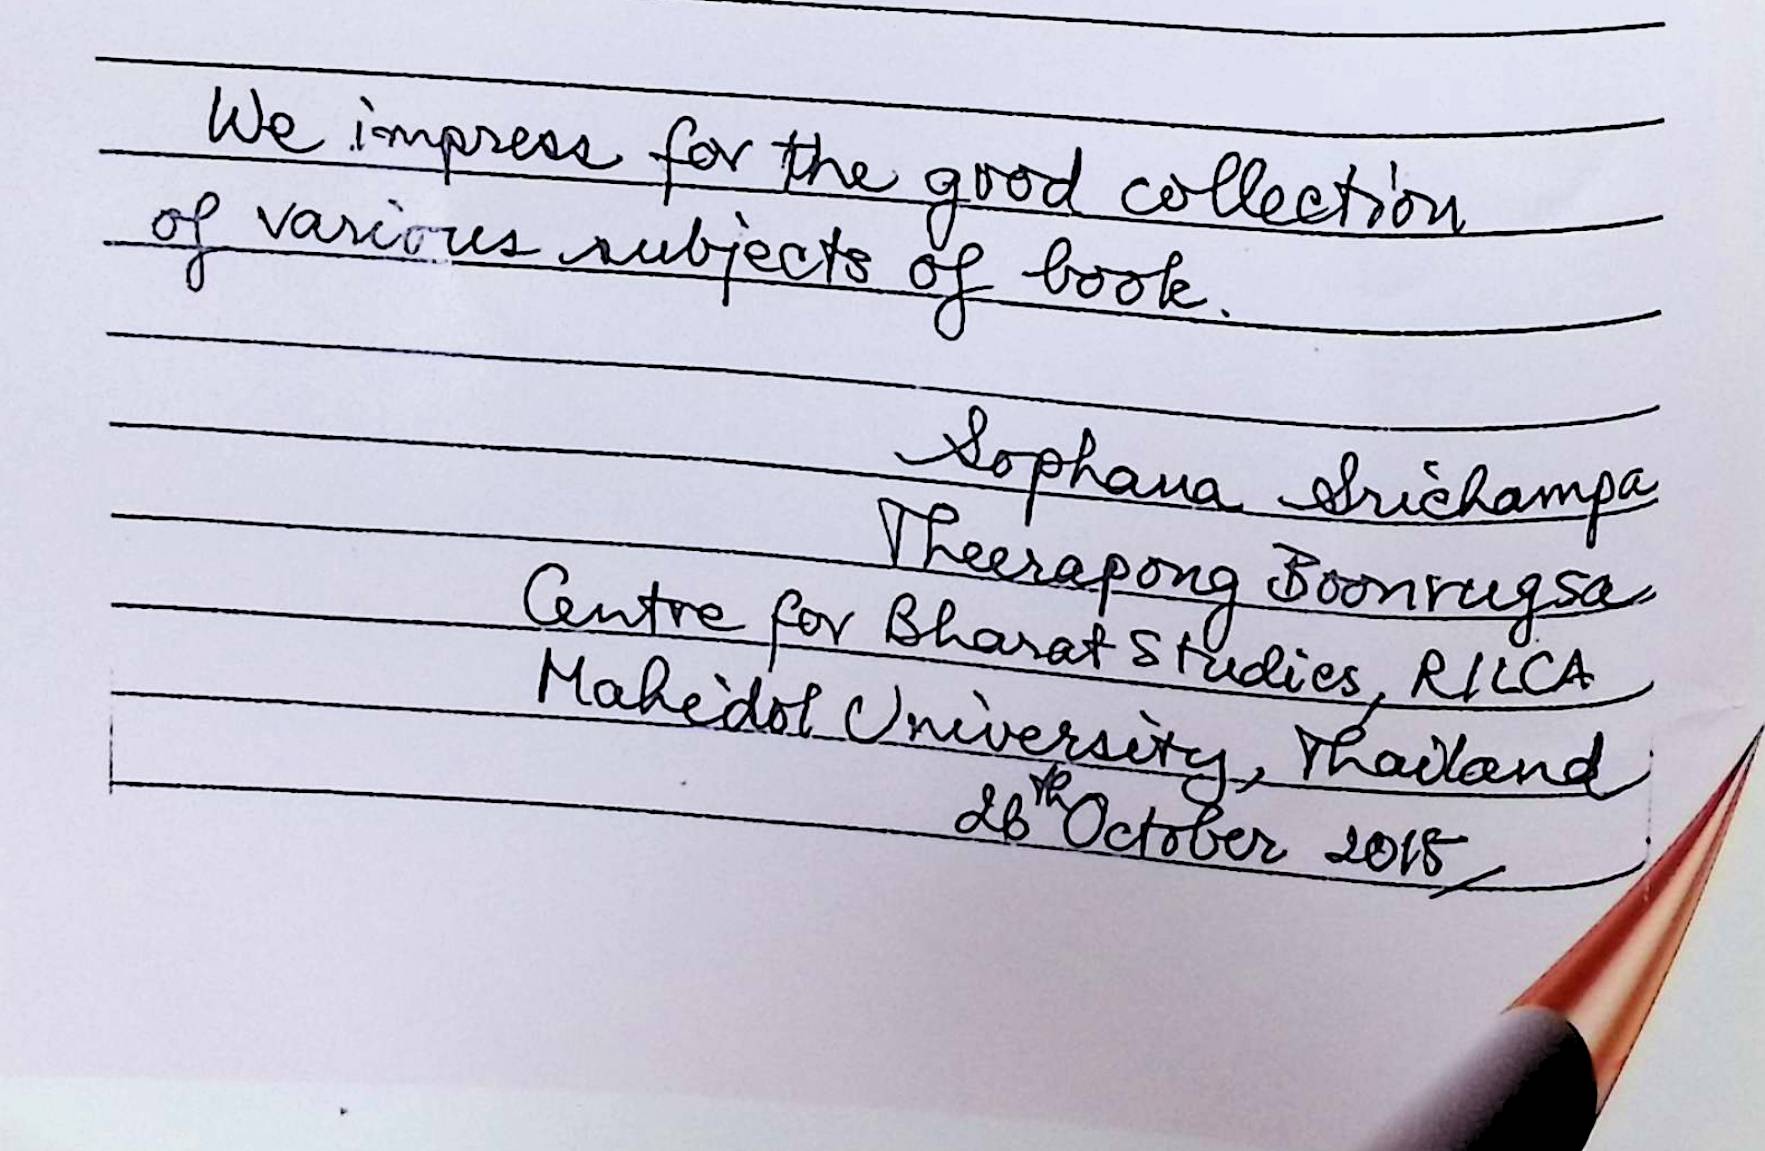 We impress for the good collection
of various subjects of book.
Sophana Srichampa
Theerapong Boonrugsa
Centre for Bharat Studies, RILCA
Mahidol University, Thailand
26th October 2015